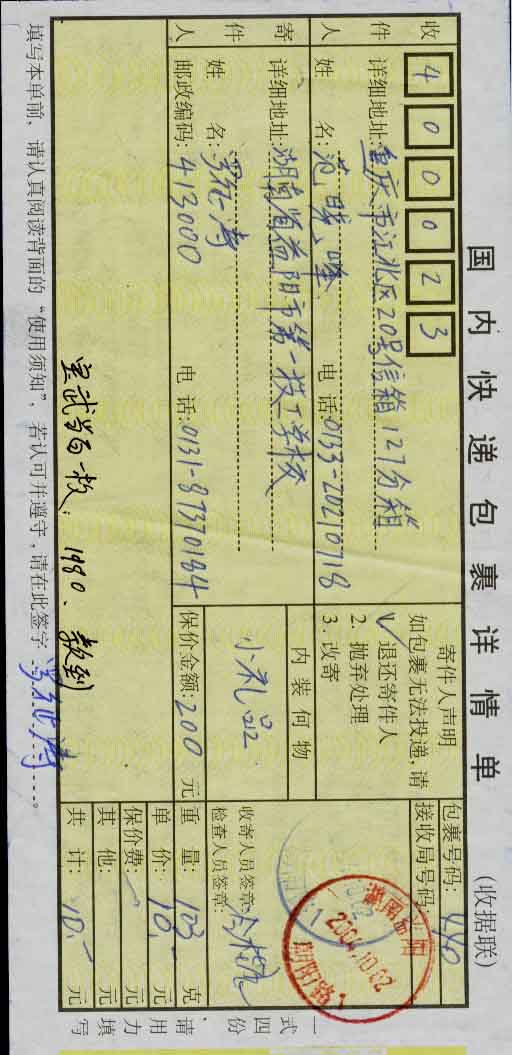 国内快递包裹详情单
(收据联)
收件人
400023
详细地址:重庆市江北区20号信箱127分箱
姓名:范晓奎
电话:0133-20210718
寄件人
详细地址:湖南省益阳市第一技工学校
姓名:罗征涛
邮政编码:413000
电话:0131-87310184
寄件人声明
如包裹无法投递,请
√退还寄件人
2. 抛弃处理
3. 改寄
内装何物
小礼品
保价金额:200元
包裹号码:440
接收局号码
湖南益阳
2004.10.02
朝阳路1
收寄人员签章:
检查人员签章:
重量:103克
单价:10.-元
保价费:元
其他:元
共计:10.-元
1980.
填写本单前,请认真阅读背面的“使用须知”,若认可并遵守,请在此签字 罗征涛。
一式四份 请用力填写